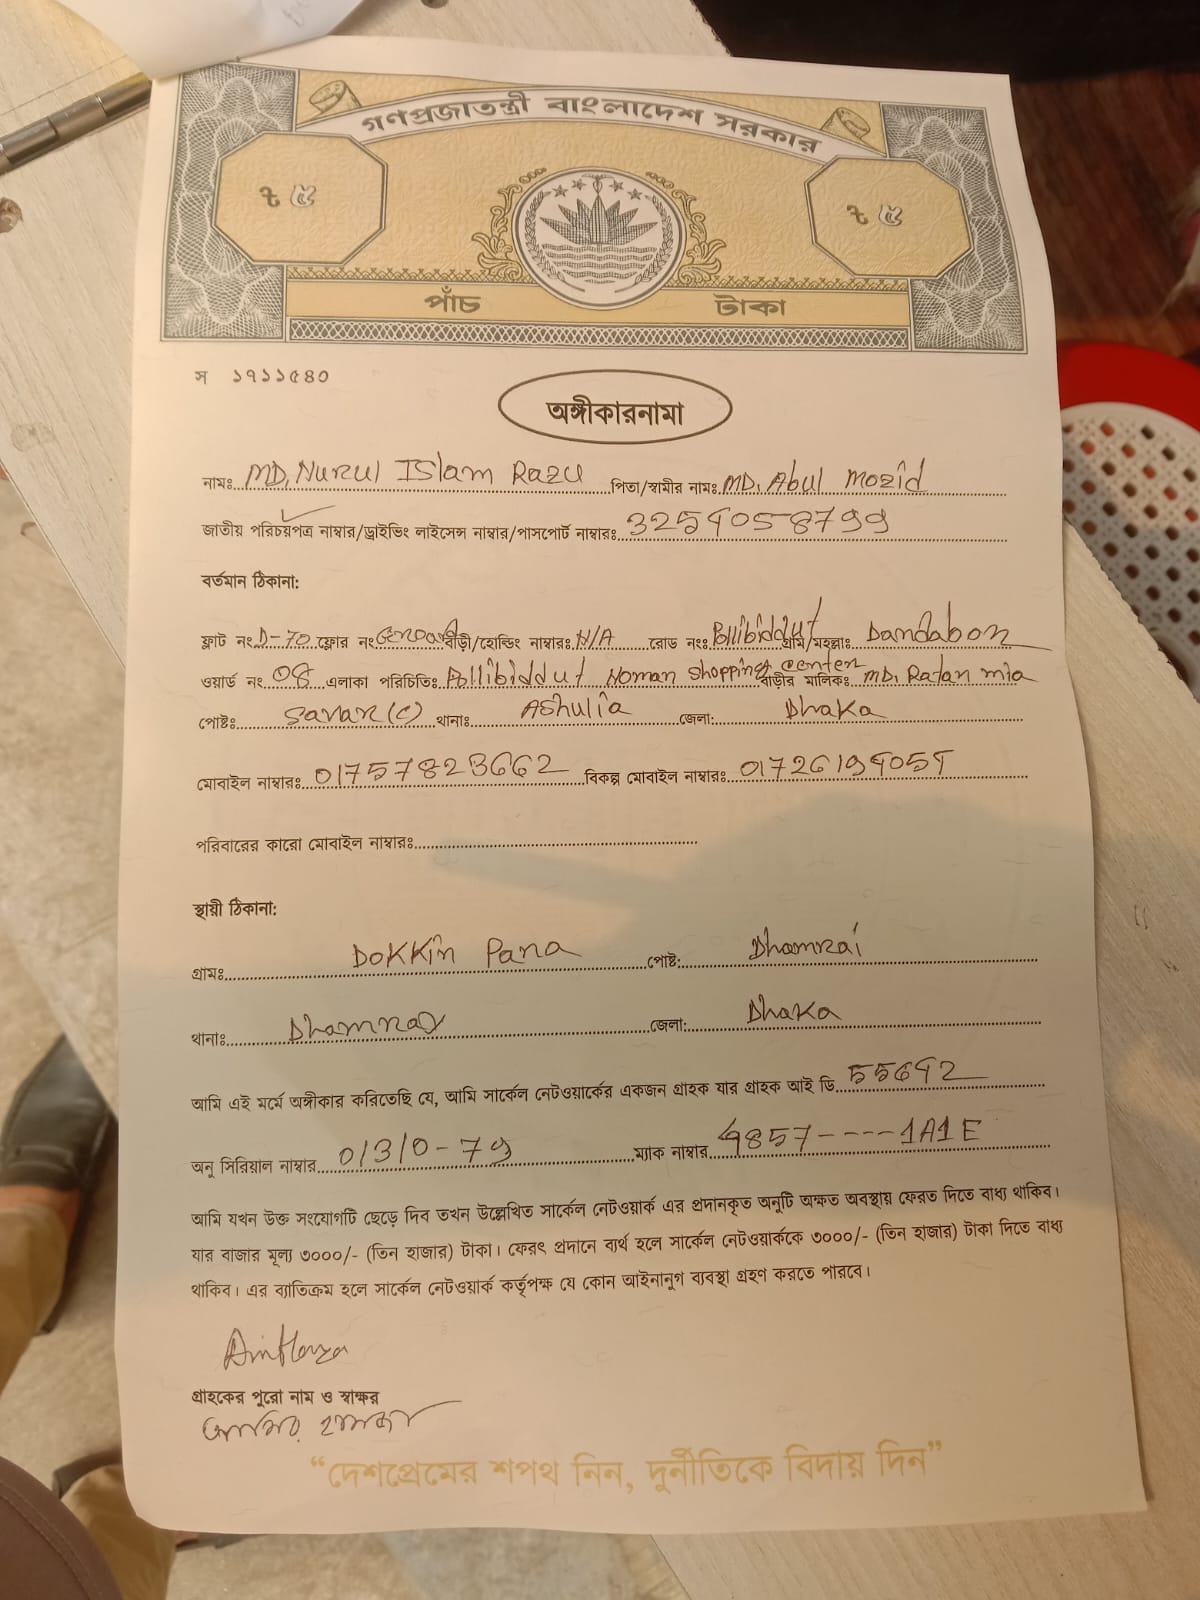 গণপ্রজাতন্ত্রী বাংলাদেশ সরকার
৳ ৫ ৳ ৫
পাঁচ টাকা
স ১৭১১৫৪০
অঙ্গীকারনামা
নামঃ MD. Nurul Islam Razu পিতা/স্বামীর নামঃ MD. Abul Mozid
জাতীয় পরিচয়পত্র নাম্বার/ড্রাইভিং লাইসেন্স নাম্বার/পাসপোর্ট নাম্বারঃ 3254058799
বর্তমান ঠিকানা:
ফ্লাট নং D-70 ফ্লোর নং বাড়ী/হোল্ডিং নাম্বারঃ N/A রোড নংঃ Pollibiddut গ্রাম/মহল্লাঃ Dandabon
ওয়ার্ড নং 08 এলাকা পরিচিতিঃ Pollibiddut Noman Shopping center বাড়ীর মালিকঃ MD. Ratan mia
পোষ্টঃ Savar (c) থানাঃ Ashulia জেলা: Dhaka
মোবাইল নাম্বারঃ 01757823662 বিকল্প মোবাইল নাম্বারঃ 01726194054
পরিবারের কারো মোবাইল নাম্বারঃ
স্থায়ী ঠিকানা:
গ্রামঃ Dokkin Para পোষ্ট: Dhamrai
থানাঃ Dhamray জেলা: Dhaka
আমি এই মর্মে অঙ্গীকার করিতেছি যে, আমি সার্কেল নেটওয়ার্কের একজন গ্রাহক যার গ্রাহক আই ডি 55642
অনু সিরিয়াল নাম্বার 0/3/0-79 ম্যাক নাম্বার 4857----1A1E
আমি যখন উক্ত সংযোগটি ছেড়ে দিব তখন উল্লেখিত সার্কেল নেটওয়ার্ক এর প্রদানকৃত অনুটি অক্ষত অবস্থায় ফেরত দিতে বাধ্য থাকিব।
যার বাজার মূল্য ৩০০০/- (তিন হাজার) টাকা। ফেরৎ প্রদানে ব্যর্থ হলে সার্কেল নেটওয়ার্ককে ৩০০০/- (তিন হাজার) টাকা দিতে বাধ্য
থাকিব। এর ব্যাতিক্রম হলে সার্কেল নেটওয়ার্ক কর্তৃপক্ষ যে কোন আইনানুগ ব্যবস্থা গ্রহণ করতে পারবে।
গ্রাহকের পুরো নাম ও স্বাক্ষর
“দেশপ্রেমের শপথ নিন, দুর্নীতিকে বিদায় দিন”